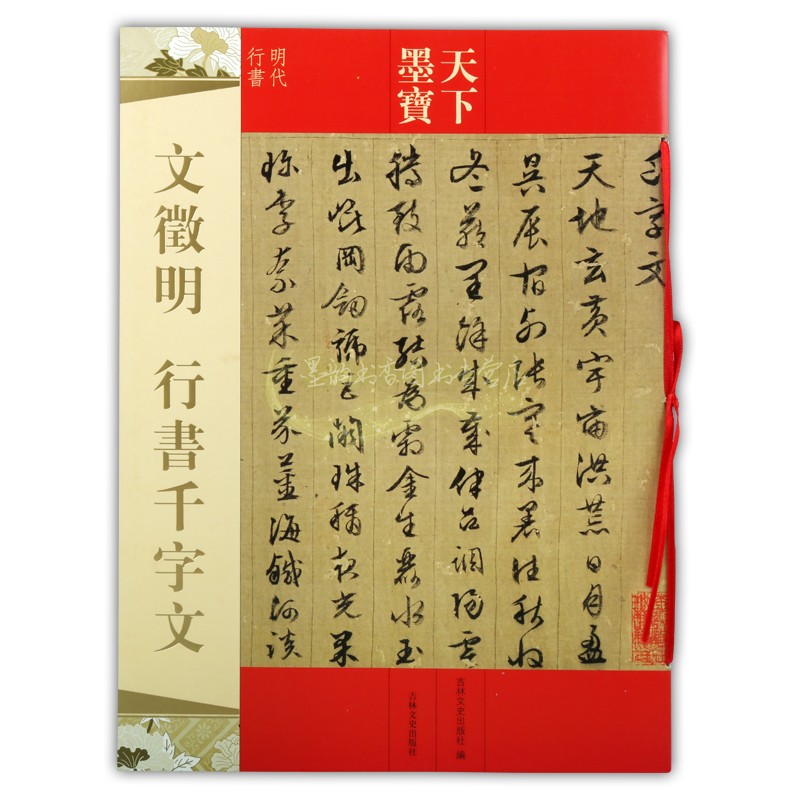 天下
墨寶
明代
行書
文徵明 行書千字文
千字文
天地玄黃宇宙洪荒日月盈
昃辰宿列張寒來暑往秋收
冬藏閏餘成歲律呂調陽雲
騰致雨露結為霜金生麗水玉
出崑岡劍號巨闕珠稱夜光果
珍李柰菜重芥薑海鹹河淡
墨韵书香图书专营店
吉林文史出版社 編
吉林文史出版社